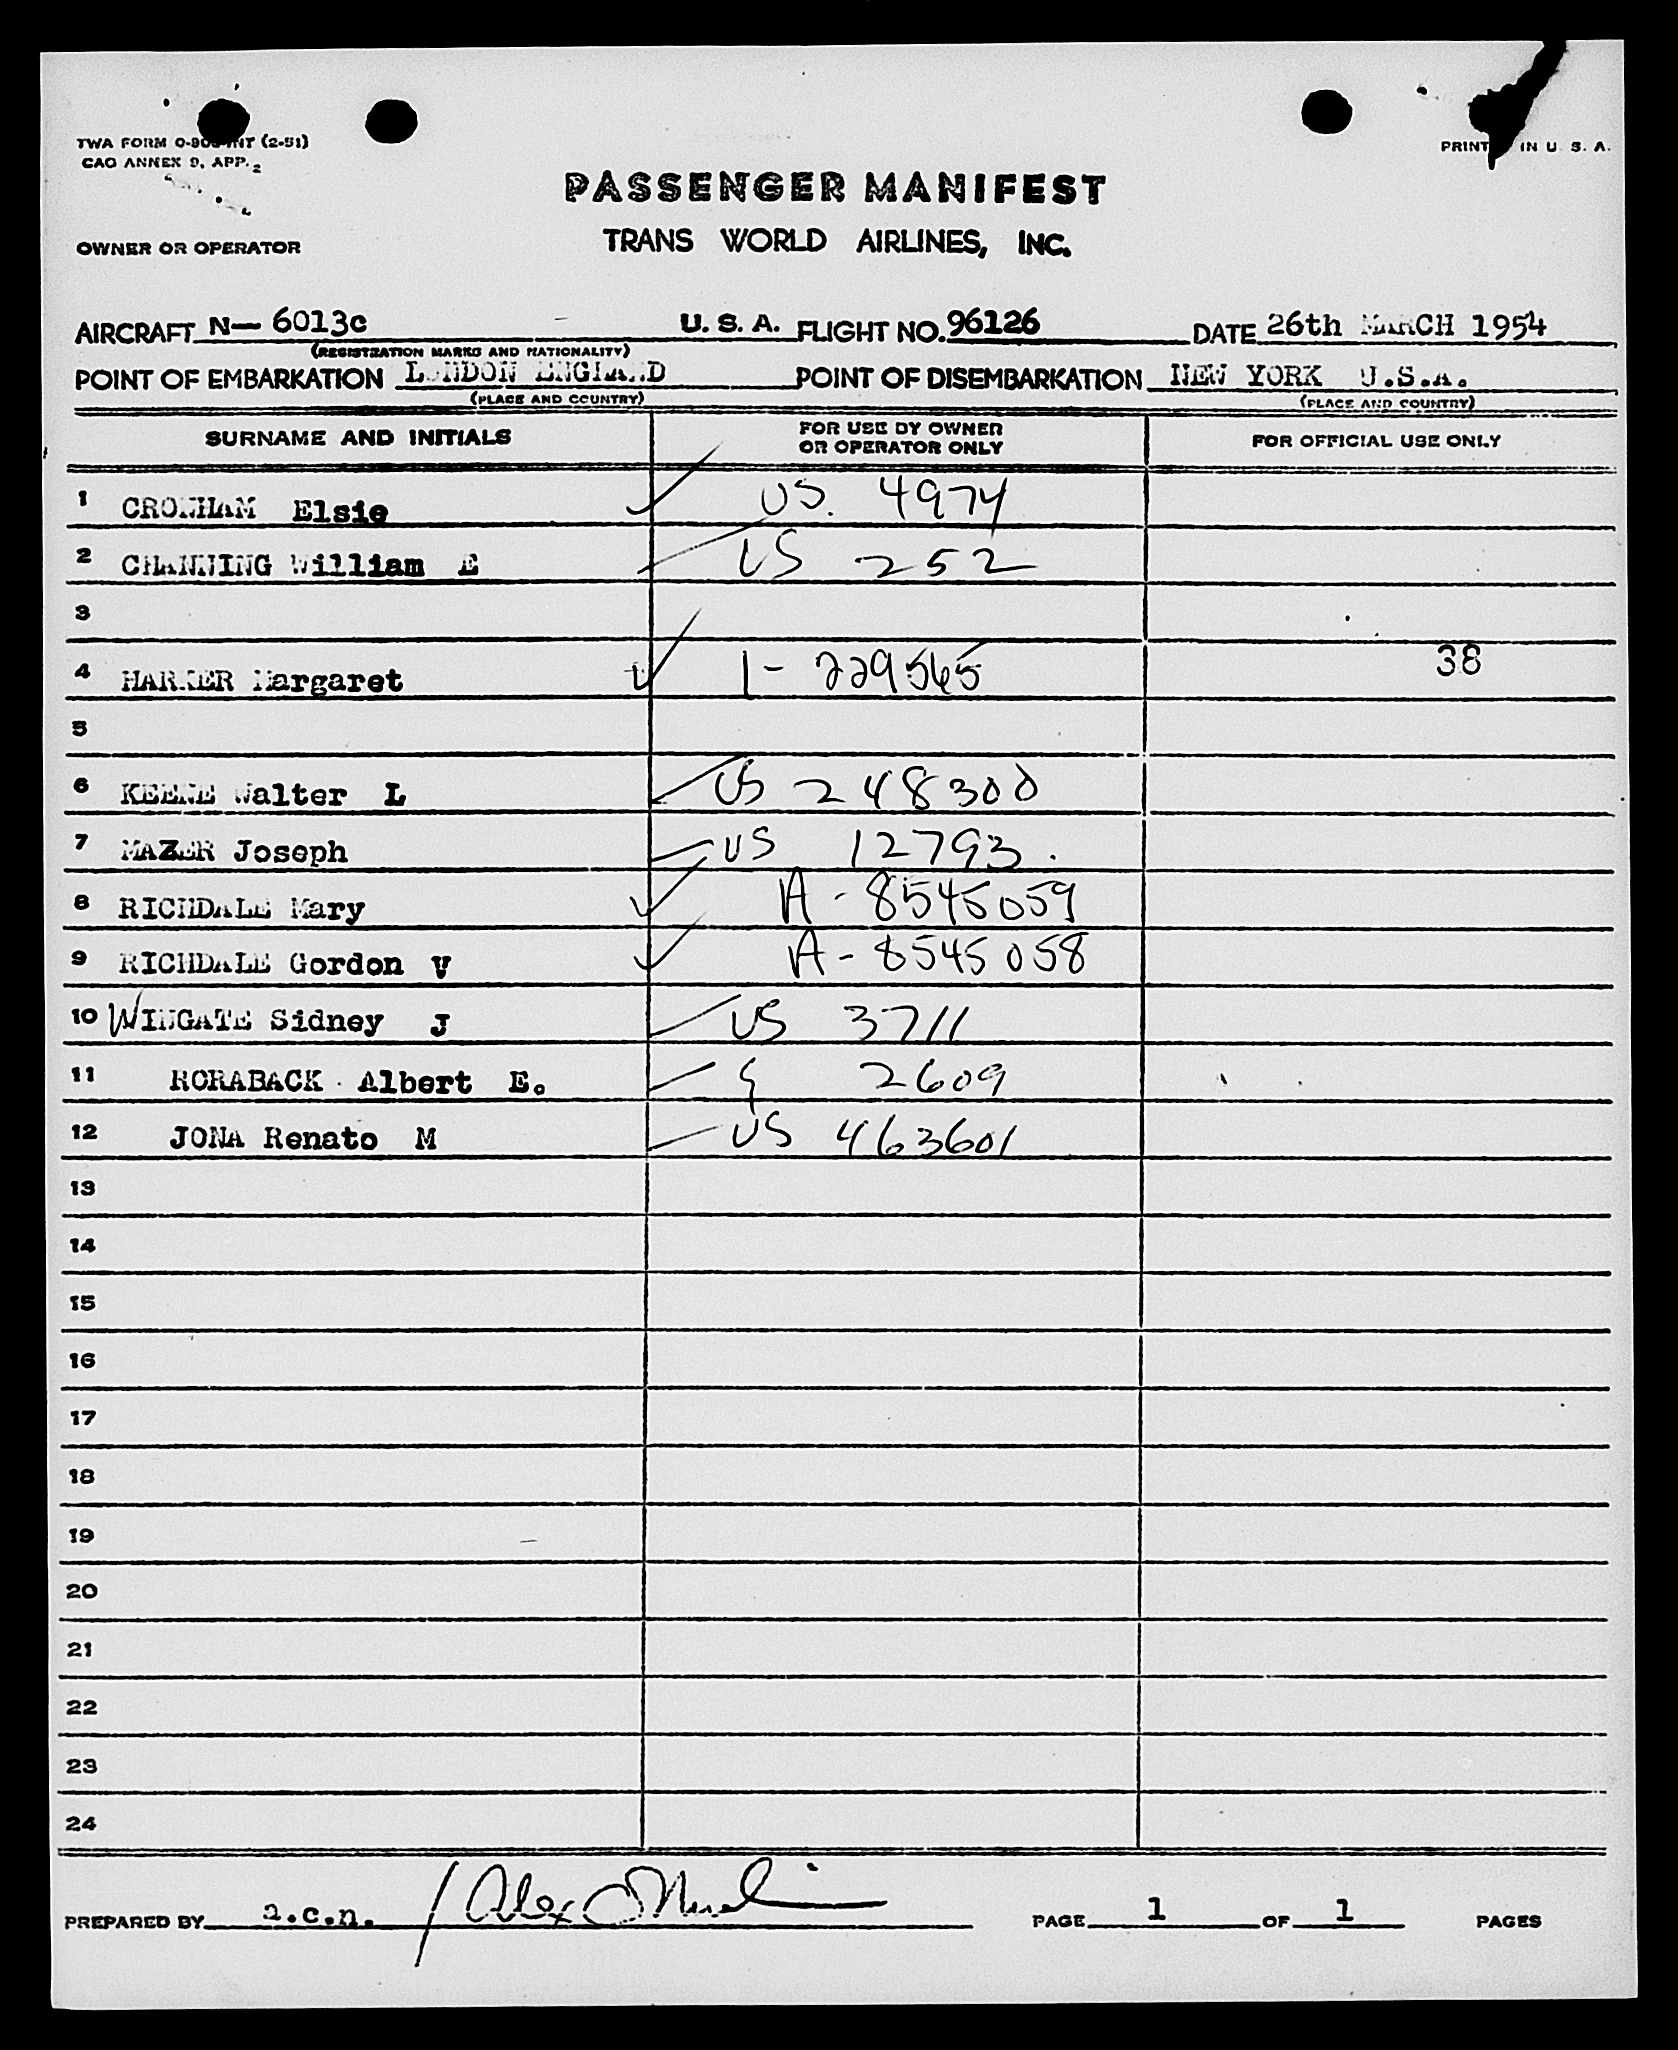 TWA FORM O-90 INT (2-51)
CAO ANNEX 9, APP. 2
PRINT IN U. S. A.
PASSENGER MANIFEST
TRANS WORLD AIRLINES, INC.
OWNER OR OPERATOR
AIRCRAFT N- 6013c U. S. A. FLIGHT NO. 96126 DATE 26th MARCH 1954
(REGISTRATION MARKS AND NATIONALITY)
POINT OF EMBARKATION LONDON ENGLAND POINT OF DISEMBARKATION NEW YORK U.S.A.
(PLACE AND COUNTRY) (PLACE AND COUNTRY)
SURNAME AND INITIALS FOR USE BY OWNER OR OPERATOR ONLY FOR OFFICIAL USE ONLY
1 Elsie US. 4974
2 CHANNING William E US 252
3
4 Margaret 1- 229565 38
5
6 KEENE Walter L US 248300
7 MAZER Joseph US 12793.
8 RICHDALE Mary A - 8545059
9 RICHDALE Gordon V A - 8545058
10 WINGATE Sidney J US 3711
11 RORABACK Albert E. 2609
12 JONA Renato M US 463601
13
14
15
16
17
18
19
20
21
22
23
24
PREPARED BY a.c.n. / Alex PAGE 1 OF 1 PAGES